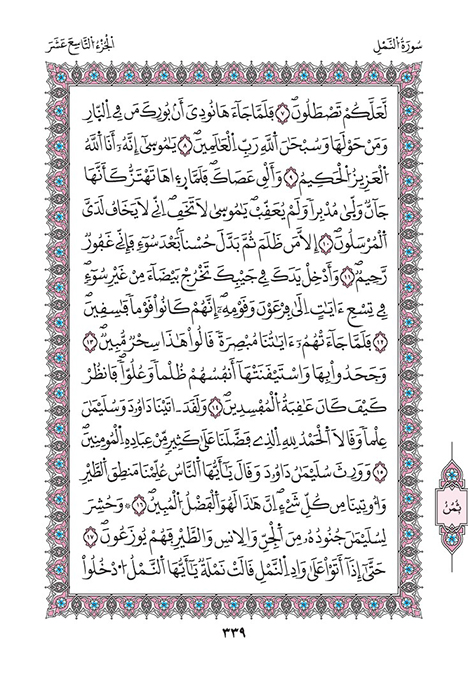 سُورَةُ النَّمْلِ
الجُزْءُ التَّاسِعَ عَشَرَ
لَّعَلَّكُمْ تَصْطَلُونَۖ ٧ فَلَمَّا جَآءَهَا نُودِيَ أَنۢ بُورِكَ مَن فِي اِ۬لنَّارِ
وَمَنْ حَوْلَهَا وَسُبْحَٰنَ اَ۬للَّهِ رَبِّ اِ۬لْعَٰلَمِينَۖ ٨ يَٰمُوسَىٰٓ إِنَّهُۥٓ أَنَا اَ۬للَّهُ
اُ۬لْعَزِيزُ اُ۬لْحَكِيمُۖ ٩ وَأَلْقِ عَصَاكَۖ فَلَمَّا رِء۪اهَا تَهْتَزُّ كَأَنَّهَا
جَآنّٞ وَلَّىٰ مُدْبِراٗ وَلَمْ يُعَقِّبْۖ يَٰمُوسَىٰ لَا تَخَفِۖ اِنِّے لَا يَخَافُ لَدَيَّ
اَ۬لْمُرْسَلُونَ ١٠ إِلَّا مَن ظَلَمَ ثُمَّ بَدَّلَ حُسْناَۢ بَعْدَ سُوٓءٖ فَإِنِّے غَفُورٞ
رَّحِيمٞۖ ١١ وَأَدْخِلْ يَدَكَ فِے جَيْبِكَ تَخْرُجْ بَيْضَآءَ مِنْ غَيْرِ سُوٓءٖۖ
فِے تِسْعِ ءَايَٰتٍ اِلَىٰ فِرْعَوْنَ وَقَوْمِهِۦٓۖ إِنَّهُمْ كَانُواْ قَوْماٗ فَٰسِقِينَۖ
١٢ فَلَمَّا جَآءَتْهُمُۥٓ ءَايَٰتُنَا مُبْصِرَةٗ قَالُواْ هَٰذَا سِحْرٞ مُّبِينٞۖ ١٣
وَجَحَدُواْ بِهَا وَاسْتَيْقَنَتْهَآ أَنفُسُهُمْ ظُلْماٗ وَعُلُوّاٗۖ فَانظُرْ
كَيْفَ كَانَ عَٰقِبَةُ اُ۬لْمُفْسِدِينَۖ ١٤ وَلَقَدَ اٰتَيْنَا دَاوُۥدَ وَسُلَيْمَٰنَ
عِلْماٗۖ وَقَالَا اَ۬لْحَمْدُ لِلهِ اِ۬لذِے فَضَّلَنَا عَلَىٰ كَثِيرٖ مِّنْ عِبَادِهِ اِ۬لْمُومِنِينَۖ
١٥ وَوَرِثَ سُلَيْمَٰنُ دَاوُۥدَۖ وَقَالَ يَٰٓأَيُّهَا اَ۬لنَّاسُ عُلِّمْنَا مَنطِقَ اَ۬لطَّيْرِ
وَأُوتِينَا مِن كُلِّ شَےْءٍۖ اِنَّ هَٰذَا لَهُوَ اَ۬لْفَضْلُ اُ۬لْمُبِينُۖ ١٦ وَحُشِرَ
لِسُلَيْمَٰنَ جُنُودُهُۥ مِنَ اَ۬لْجِنِّ وَالِانسِ وَالطَّيْرِ فَهُمْ يُوزَعُونَۖ ١٧
حَتَّىٰٓ إِذَآ أَتَوْاْ عَلَىٰ وَادِ اِ۬لنَّمْلِ قَالَتْ نَمْلَةٞ يَٰٓأَيُّهَا اَ۬لنَّمْلُ اُ۟دْخُلُواْ
ثُمُنُ
٣٣٩